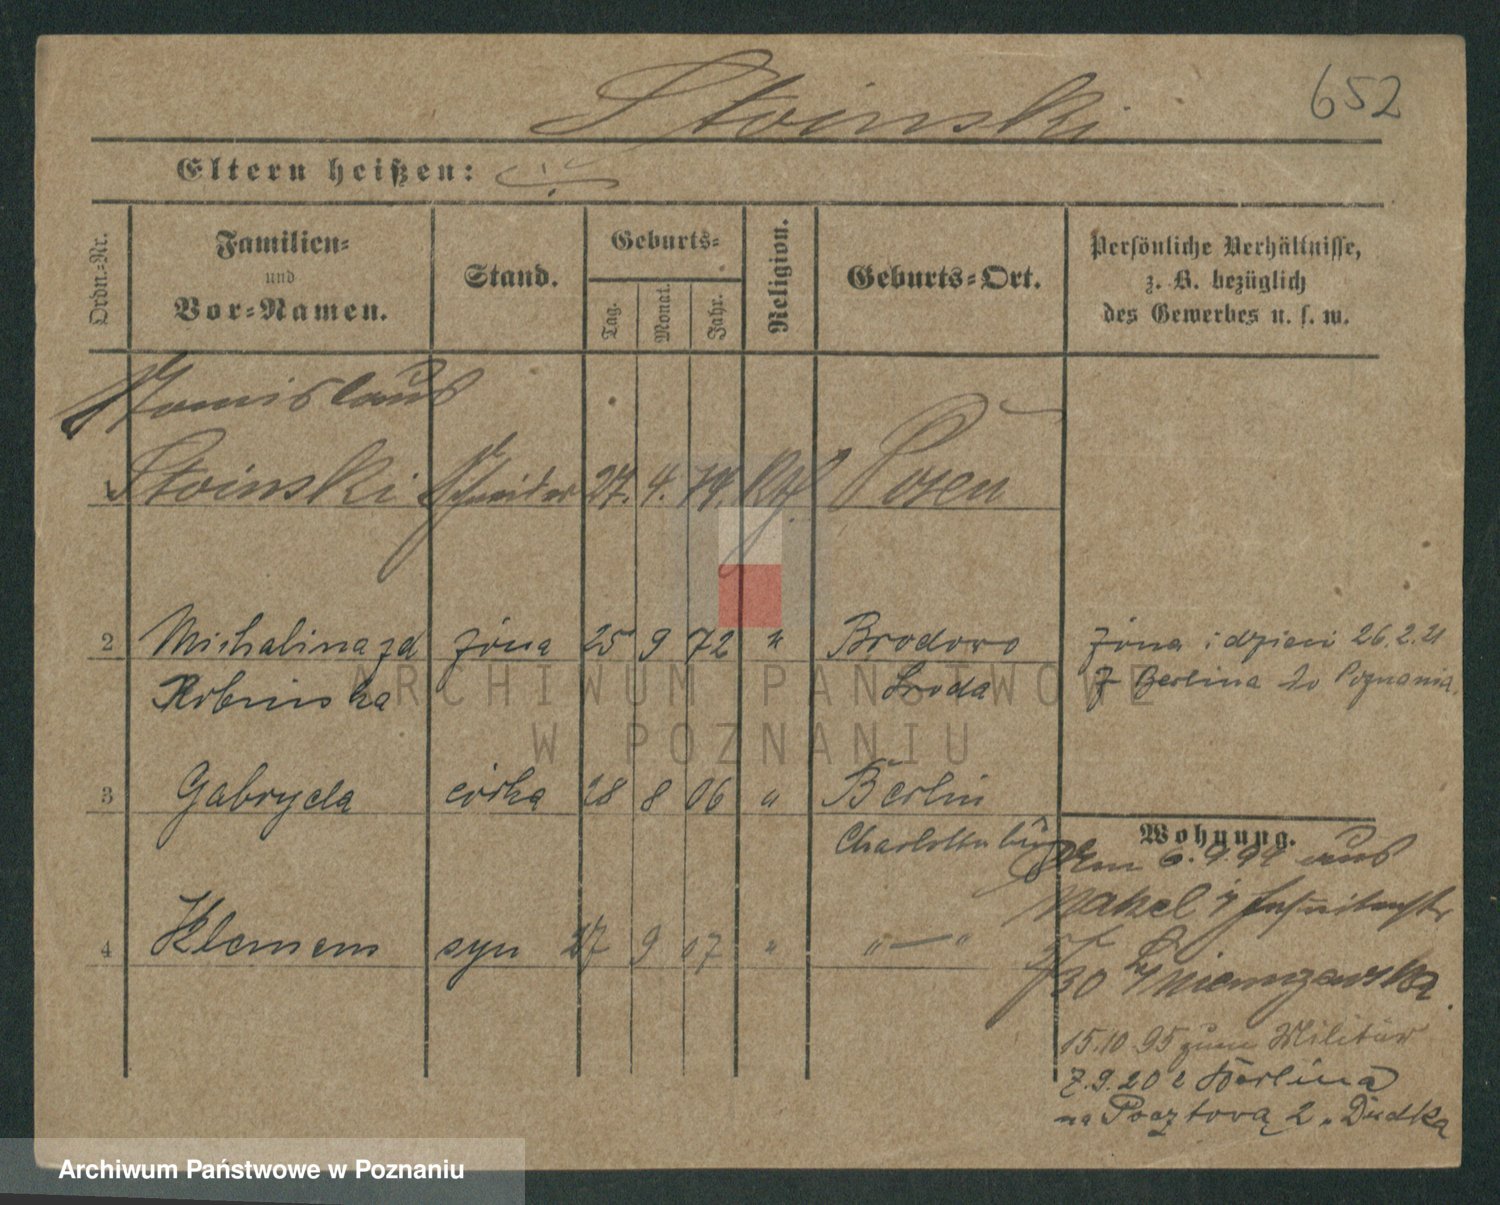 652
Stoinski
Eltern heißen:
Ordn.-Nr.
Familien-
und
Vor-Namen.
Stand.
Geburts-
Tag.
Monat.
Jahr.
Religion.
Geburts-Ort.
Persönliche Verhältnisse,
z. B. bezüglich
des Gewerbes u. s. w.
Stanislaus
1 Stoinski Schneider 27. 4. 74. Kth Posen
2 Michalina zd żona 25 9 72 " Brodowo żona i dzieci 26.2.21
Robińska Środa z Berlina do Poznania.
3 Gabryela córka 28 8 06 " Berlin
Charlottenburg
Wohnung.
Den 6.9.94 aus
Nakel
4 Klemens syn 27 9 07 " " — "
30
15.10.95 zum Militär
7.9.20 z Berlina
na Pocztową 2 Dudka
ARCHIWUM PAŃSTWOWE
W POZNANIU
Archiwum Państwowe w Poznaniu